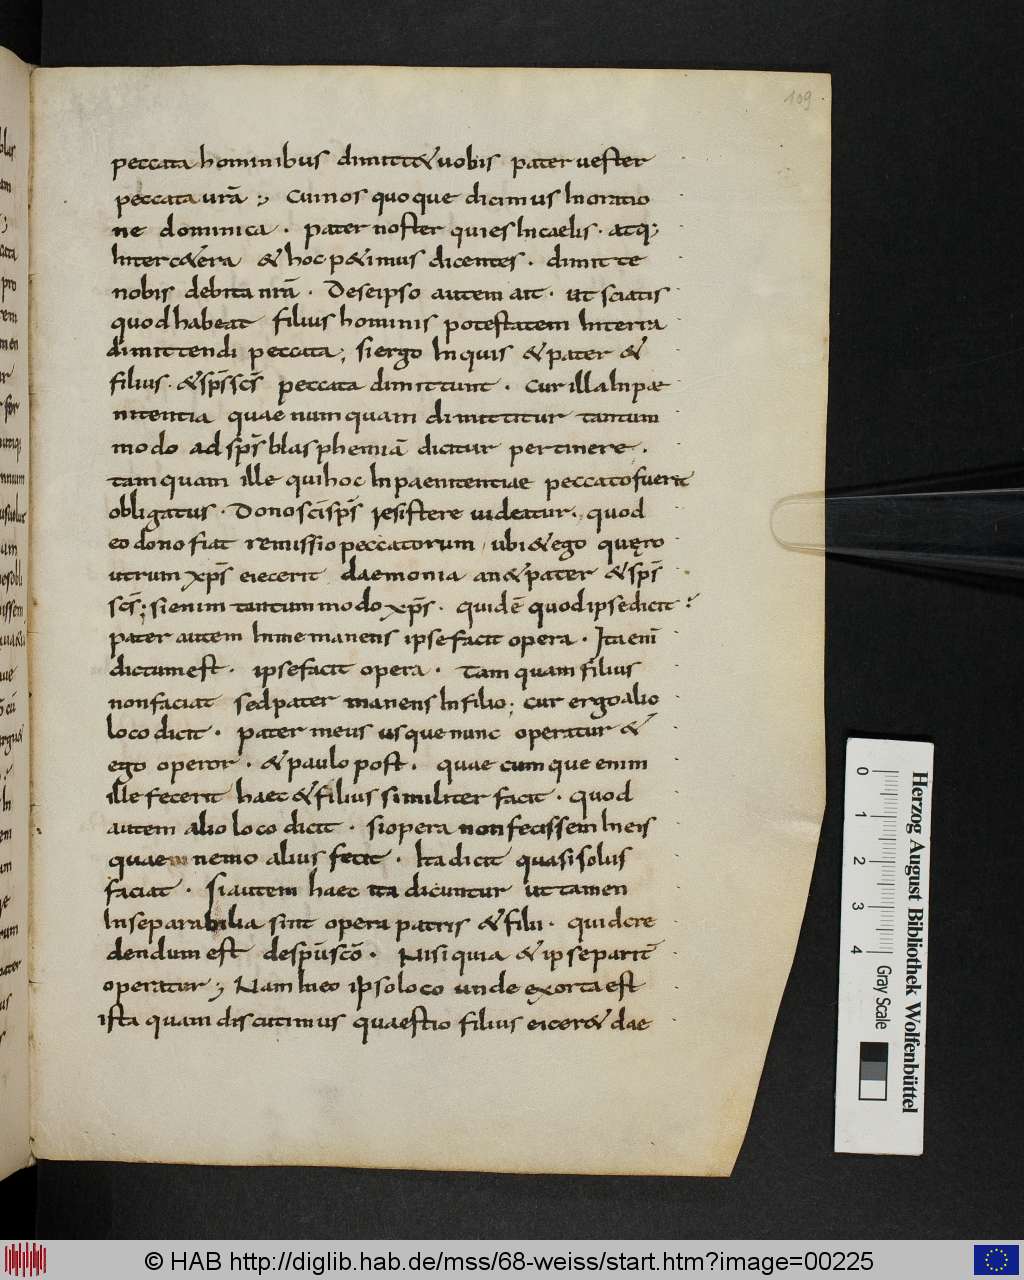 109
peccata hominibus dimittet & uobis pater uester
peccata urā ; Cum os quoque dicimus In oratio
ne dominica . pater noster qui es In caelis . atq;
Inter c&era & hoc p&imus dicentes . dimitte
nobis debita nrā . De se ipso autem ait . ut sciatis
quod habeat filius hominis potestatem In terra
dimittendi peccata ; si ergo Inquis & pater &
filius . & sps̄ scs̄ peccata dimittunt . Cur illa Inpae
nitentia quae numquam dimittitur tantum
modo ad sps̄ blasphemiā dicitur pertinere .
tamquam ille qui hoc Inpaenitentiae peccato fuerit
obligatus . Dono sci sps̄ resistere uideatur . quod
eo dono fiat remissio peccatorum , ubi & ego quęro
utrum xps̄ eiecerit daemonia an & pater & sps̄
scs̄ ; si enim tantummodo xps̄ . quid ē quod ipse dicit ?
pater autem In me manens ipse facit opera . Ita enī
dictum est . ipse facit opera . Tamquam filius
non faciat sed pater manens In filio ; cur ergo alio
loco dicit . pater meus usque nunc operatur &
ego operor . & paulo post . quaecumque enim
ille fecerit haec & filius similiter facit . quod
autem alio loco dicit . si opera non fecissem In eis
quae nemo alius fecit . Ita dicit quasi solus
faciat . Si autem haec ita dicuntur ut tamen
Inseparabilia sint opera patris & filii . quid cre
dendum est de spū scō . Nisi quia & ip se parit̄
operatur ; Nam In eo ipso loco unde exorta est
ista quam discutimus quaestio filius eicer& dae
Herzog August Bibliothek Wolfenbüttel
0 1 2 3 4
Gray Scale
© HAB http://diglib.hab.de/mss/68-weiss/start.htm?image=00225